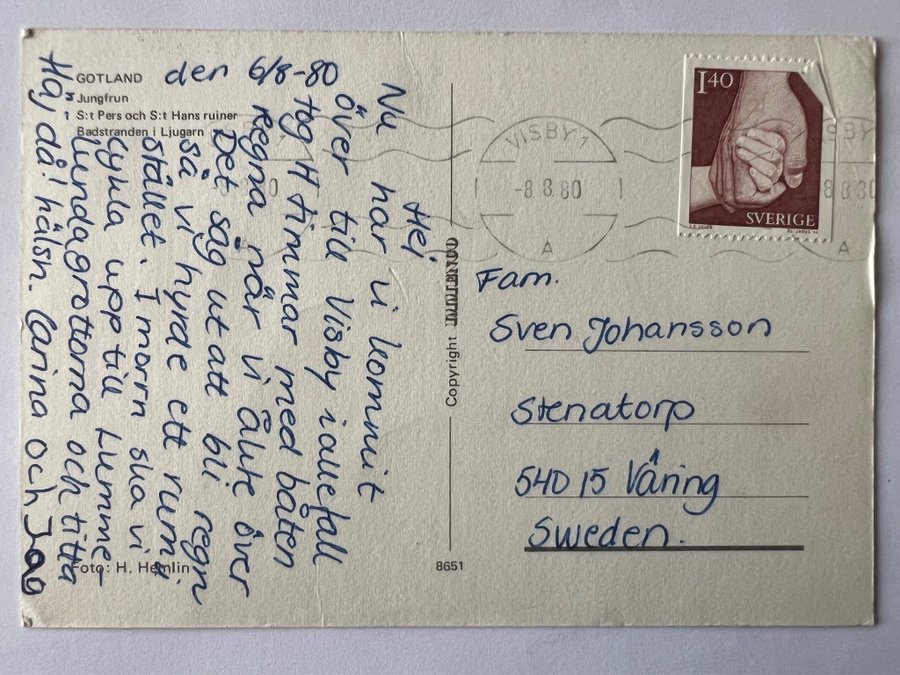 GOTLAND
Jungfrun
S:t Pers och S:t Hans ruiner
Badstranden i Ljugarn
den 6/8-80
Hej
Nu har vi kommit
över till Visby iallefall
tog 4 timmar med båten
Regna når vi åkte över
Det såg ut att bli regn
så vi hyrde ett rum i
stället. I morrn ska vi
cykla upp till Lumme-
lundagrottorna och titta
Haj då! hälsn. Carina och Jag
Foto: H. Hemlin
Copyright
8651
1 40
SVERIGE
VISBY 1
-8 8.80
A
VISBY
8 8.80
A
Fam.
Sven Johansson
Stenatorp
540 15 Våring
Sweden.